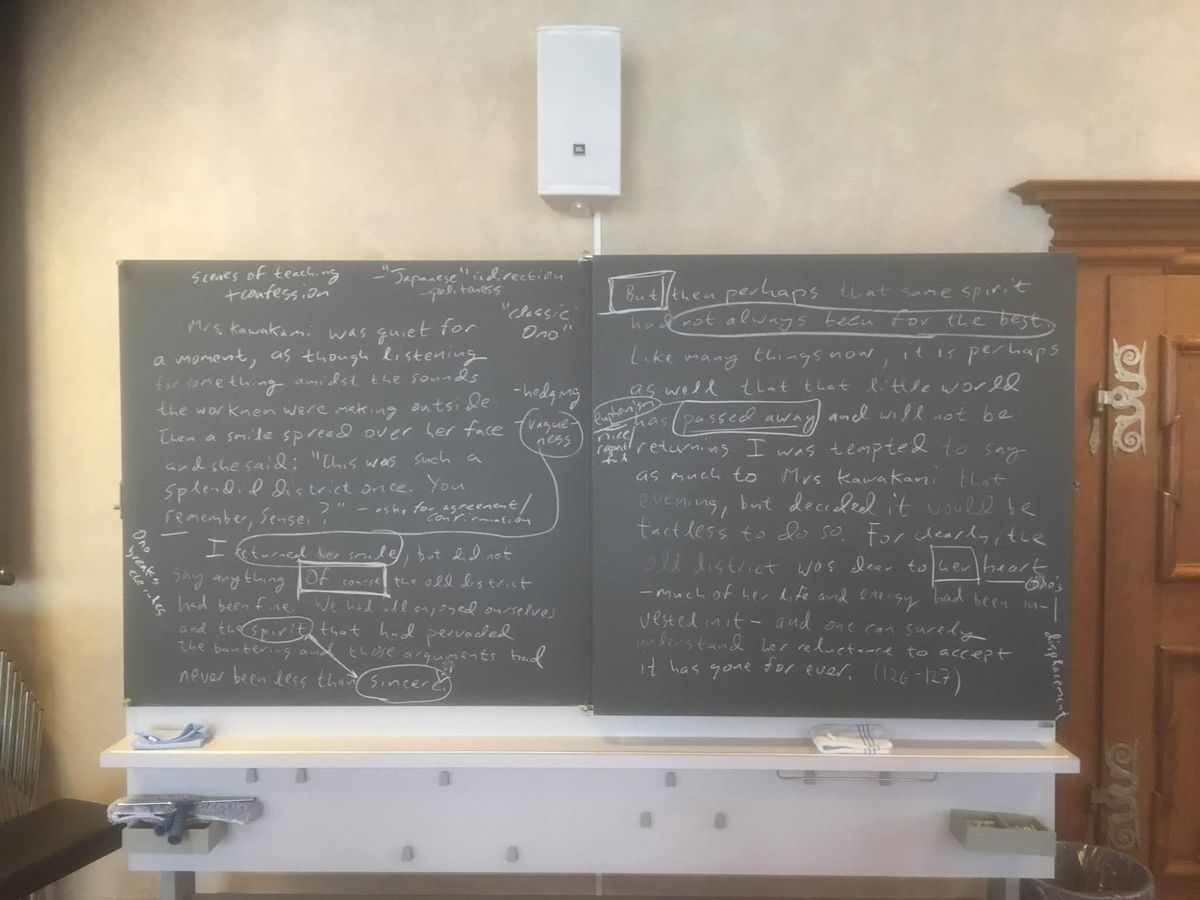 scenes of teaching
+confession
-"Japanese" indirection
-politeness
"classic
Ono"
Mrs. Kawakami was quiet for
a moment, as though listening
for something amidst the sounds
the workmen were making outside.
Then a smile spread over her face
and she said: "This was such a
splendid district once. You
remember, Sensei?" - asks for agreement/
confirmation
-hedging
-vague-
ness
Ono
breaks
the rules
I returned her smile, but did not
say anything. Of course the old district
had been fine. We had all enjoyed ourselves
and the spirit that had pervaded
the bantering and those arguments had
never been less than sincere.
But then perhaps that same spirit
had not always been for the best.
Like many things now, it is perhaps
as well that that little world
has passed away and will not be
returning. I was tempted to say
as much to Mrs Kawakami that
evening, but decided it would be
tactless to do so. For clearly, the
old district was dear to her heart
-much of her life and energy had been in-
vested in it - and one can surely
understand her reluctance to accept
it has gone for ever. (126-127)
euphemism
nice/
Ono's
displacement